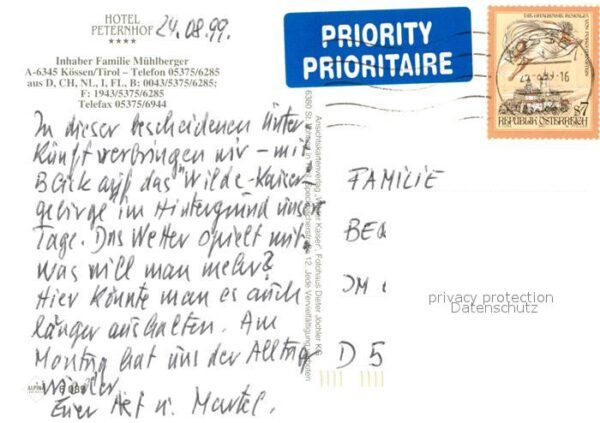 HOTEL
PETERNHOF
****
24.08.99.
Inhaber Familie Mühlberger
A-6345 Kössen/Tirol – Telefon 05375/6285
aus D, CH, NL, I, FL, B: 0043/5375/6285;
F: 1943/5375/6285
Telefax 05375/6944
In dieser bescheidenen Unter
Kunft verbringen wir – mit
Blick auf das "Wilde-Kaiser
gebirge im Hintergrund unsere
Tage. Das Wetter spielt mit.
Was will man mehr?
Hier könnte man es auch
länger aushalten. Am
Montag hat uns der Alltag
wieder
Euer u.
ALPINA
PRIORITY
PRIORITAIRE
S7
REPUBLIK ÖSTERREICH
Ansichtskartenverlag Kaiser", Fotohaus Dieter Jöchler KG
6380 St. 12. Jede Vervielfältigung
FAMILIE
BE
D 5
privacy protection
Datenschutz